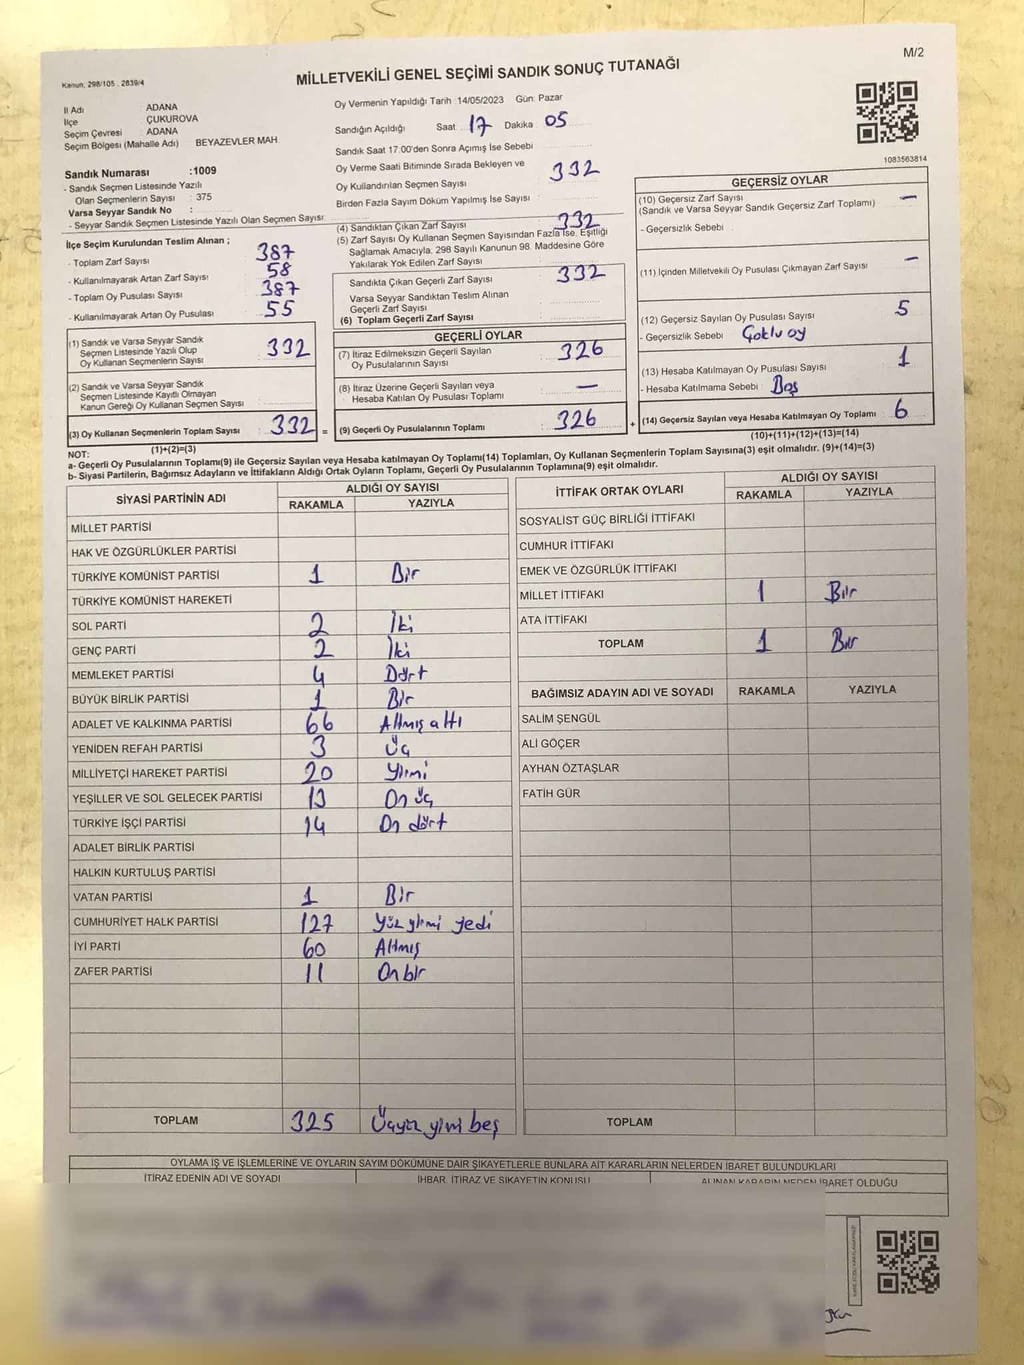 M/2
Kanun. 298/105 . 2839/4
MİLLETVEKİLİ GENEL SEÇİMİ SANDIK SONUÇ TUTANAĞI
İl Adı ADANA
İlçe ÇUKUROVA
Seçim Çevresi ADANA
Seçim Bölgesi (Mahalle Adı) BEYAZEVLER MAH
Sandık Numarası :1009
- Sandık Seçmen Listesinde Yazılı
Olan Seçmenlerin Sayısı : 375
Varsa Seyyar Sandık No :
- Seyyar Sandık Seçmen Listesinde Yazılı Olan Seçmen Sayısı:
İlçe Seçim Kurulundan Teslim Alınan ;
- Toplam Zarf Sayısı 387
- Kullanılmayarak Artan Zarf Sayısı 58
- Toplam Oy Pusulası Sayısı 387
- Kullanılmayarak Artan Oy Pusulası 55
(1) Sandık ve Varsa Seyyar Sandık
Seçmen Listesinde Yazılı Olup
Oy Kullanan Seçmenlerin Sayısı : 332
(2) Sandık ve Varsa Seyyar Sandık
Seçmen Listesinde Kayıtlı Olmayan
Kanun Gereği Oy Kullanan Seçmen Sayısı :
(3) Oy Kullanan Seçmenlerin Toplam Sayısı : 332 =
(1)+(2)=(3)
Oy Vermenin Yapıldığı Tarih :14/05/2023 Gün: Pazar
Sandığın Açıldığı Saat 17 Dakika 05
Sandık Saat 17:00'den Sonra Açımış İse Sebebi
Oy Verme Saati Bitiminde Sırada Bekleyen ve
Oy Kullandırılan Seçmen Sayısı : 332
Birden Fazla Sayım Döküm Yapılmış İse Sayısı :
(4) Sandıktan Çıkan Zarf Sayısı : 332
(5) Zarf Sayısı Oy Kullanan Seçmen Sayısından Fazla İse, Eşitliği
Sağlamak Amacıyla, 298 Sayılı Kanunun 98. Maddesine Göre
Yakılarak Yok Edilen Zarf Sayısı :
Sandıkta Çıkan Geçerli Zarf Sayısı : 332
Varsa Seyyar Sandıktan Teslim Alınan
Geçerli Zarf Sayısı :
(6) Toplam Geçerli Zarf Sayısı :
GEÇERLİ OYLAR
(7) İtiraz Edilmeksizin Geçerli Sayılan
Oy Pusulalarının Sayısı : 326
(8) İtiraz Üzerine Geçerli Sayılan veya
Hesaba Katılan Oy Pusulası Toplamı : —
(9) Geçerli Oy Pusulalarının Toplamı : 326 +
1083563814
GEÇERSİZ OYLAR
(10) Geçersiz Zarf Sayısı : —
(Sandık ve Varsa Seyyar Sandık Geçersiz Zarf Toplamı)
- Geçersizlik Sebebi :
(11) İçinden Milletvekili Oy Pusulası Çıkmayan Zarf Sayısı : —
(12) Geçersiz Sayılan Oy Pusulası Sayısı : 5
- Geçersizlik Sebebi : Çoklu oy
(13) Hesaba Katılmayan Oy Pusulası Sayısı : 1
- Hesaba Katılmama Sebebi : Boş
(14) Geçersiz Sayılan veya Hesaba Katılmayan Oy Toplamı : 6
(10)+(11)+(12)+(13)=(14)
NOT:
a- Geçerli Oy Pusulalarının Toplamı(9) ile Geçersiz Sayılan veya Hesaba Katılmayan Oy Toplam(14) Toplamları, Oy Kullanan Seçmenlerin Toplam Sayısına(3) eşit olmalıdır. (9)+(14)=(3)
b- Siyasi Partilerin, Bağımsız Adayların ve İttifakların Aldığı Ortak Oyların Toplamı, Geçerli Oy Pusulalarının Toplamına(9) eşit olmalıdır.
SİYASİ PARTİNİN ADI ALDIĞI OY SAYISI
RAKAMLA YAZIYLA
MİLLET PARTİSİ
HAK VE ÖZGÜRLÜKLER PARTİSİ
TÜRKİYE KOMÜNİST PARTİSİ 1 Bir
TÜRKİYE KOMÜNİST HAREKETİ
SOL PARTİ 2 İki
GENÇ PARTİ 2 İki
MEMLEKET PARTİSİ 4 Dört
BÜYÜK BİRLİK PARTİSİ 1 Bir
ADALET VE KALKINMA PARTİSİ 66 Altmış altı
YENİDEN REFAH PARTİSİ 3 Üç
MİLLİYETÇİ HAREKET PARTİSİ 20 Yirmi
YEŞİLLER VE SOL GELECEK PARTİSİ 13 On üç
TÜRKİYE İŞÇİ PARTİSİ 14 On dört
ADALET BİRLİK PARTİSİ
HALKIN KURTULUŞ PARTİSİ
VATAN PARTİSİ 1 Bir
CUMHURİYET HALK PARTİSİ 127 Yüz yirmi yedi
İYİ PARTİ 60 Altmış
ZAFER PARTİSİ 11 On bir
TOPLAM 325 Üçyüz yirmi beş
İTTİFAK ORTAK OYLARI ALDIĞI OY SAYISI
RAKAMLA YAZIYLA
SOSYALİST GÜÇ BİRLİĞİ İTTİFAKI
CUMHUR İTTİFAKI
EMEK VE ÖZGÜRLÜK İTTİFAKI
MİLLET İTTİFAKI 1 Bir
ATA İTTİFAKI
TOPLAM 1 Bir
BAĞIMSIZ ADAYIN ADI VE SOYADI RAKAMLA YAZIYLA
SALİM ŞENGÜL
ALİ GÖÇER
AYHAN ÖZTAŞLAR
FATİH GÜR
TOPLAM
OYLAMA İŞ VE İŞLEMLERİNE VE OYLARIN SAYIM DÖKÜMÜNE DAİR ŞİKAYETLERLE BUNLARA AİT KARARLARIN NELERDEN İBARET BULUNDUKLARI
İTİRAZ EDENİN ADI VE SOYADI İHBAR, İTİRAZ VE ŞİKAYETİN KONUSU ALINAN KARARIN NEDEN İBARET OLDUĞU